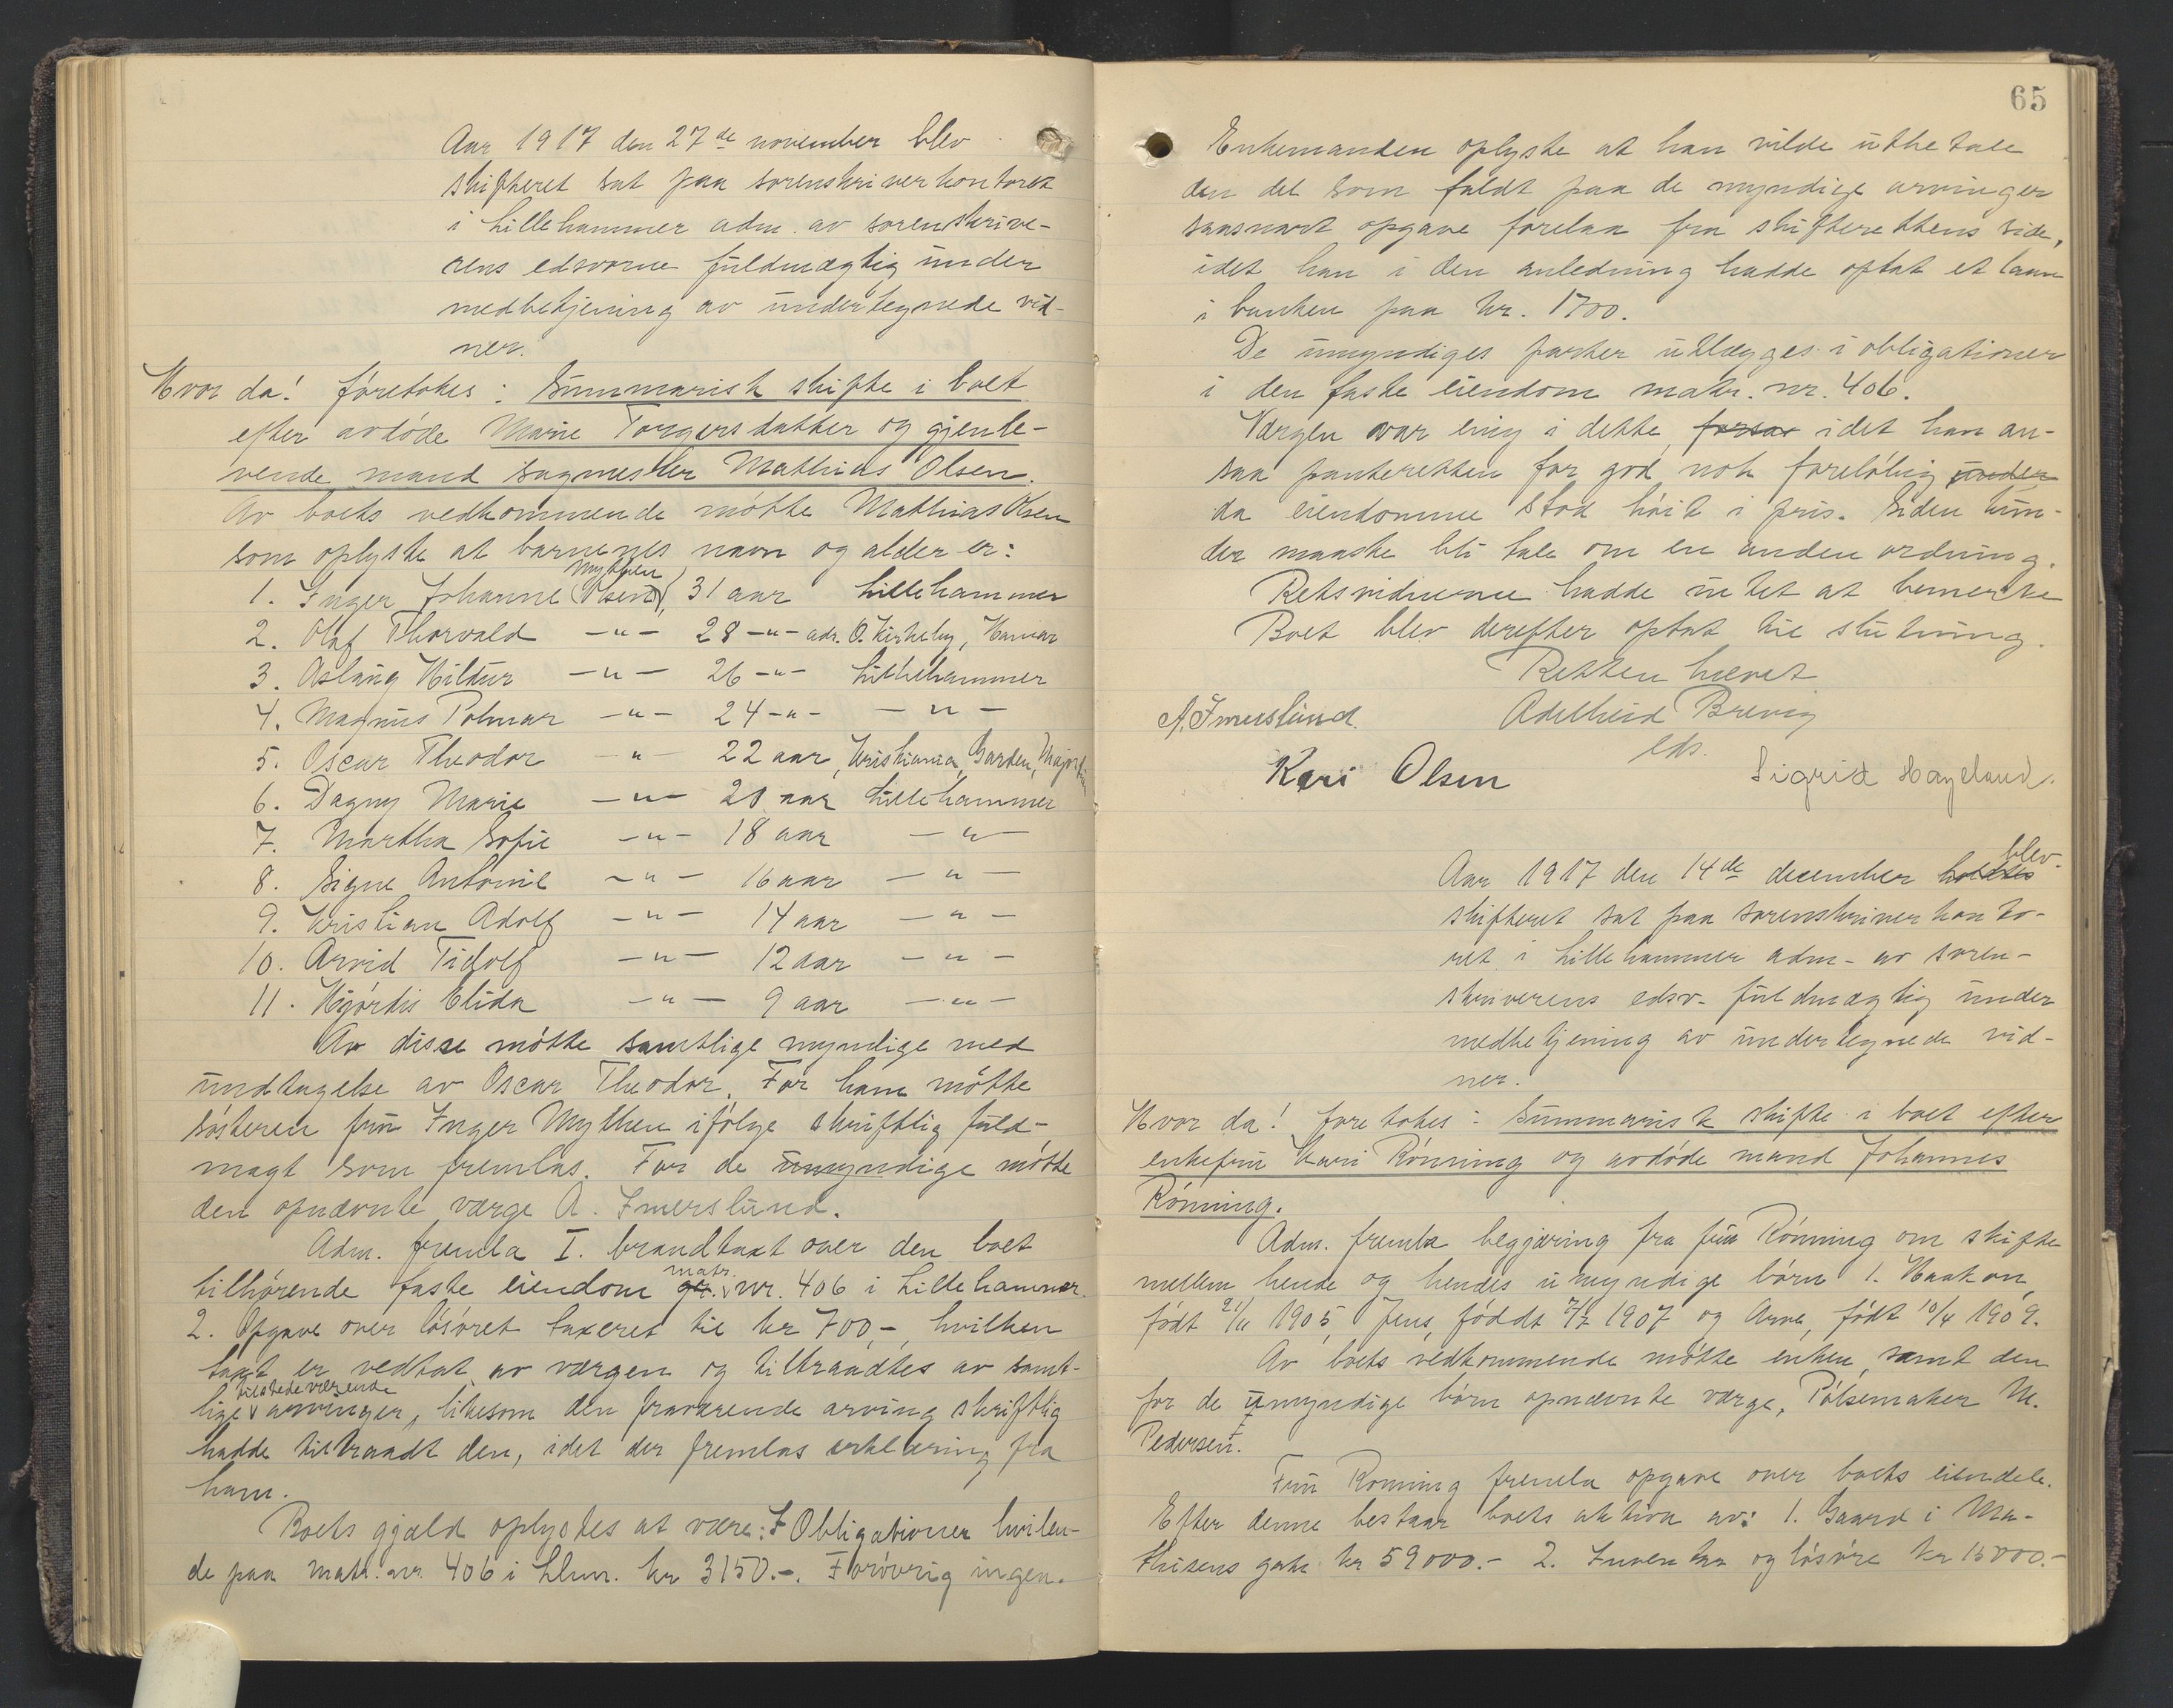 Aar 1917 den 27de november blev
skifteret sat paa sorenskriverkontoret
i Lillehammer adm. av sorenskrive-
rens edsvorne fuldmægtig under
medbetjening av undertegnede vid-
ner.
Hvor da! foretokes: Summarisk skifte i boet
efter avdöde Marie Torgersdatter og gjenle-
vende mand sagmester Mathias Olsen.
Av boets vedkommende mötte Mathias Olsen
som oplyste at barnenes navn og alder er:
Mythen
1. Inger Johanne (Olsen), 31 aar Lillehammer
2. Olaf Thorvald -"- 28 -"- adr. O. Kirkeby, Hamar
3. Aslaug Hildur -"- 26 -"- Lillehammer
4. Magnus Polmar -"- 24 -"- -"-
5. Oscar Theodor -"- 22 aar, Kristiania, Garden, Majorst
6. Dagny Marie -"- 20 aar Lillehammer
7. Martha Sofie -"- 18 aar -"-
8. Signe Antonie -"- 16 aar -"-
9. Kristian Adolf -"- 14 aar -"-
10. Arvid Tidolf -"- 12 aar -"-
11. Hjördis Elida -"- 9 aar -"-
Av disse mötte samtlige myndige med
undtagelse av Oscar Theodor. For ham mötte
sösteren fru Inger Mythen ifölge skriftlig fuld-
magt som fremlas. For de umyndige mötte
den opnævnte værge A. Imerslund.
Adm. fremla I. brandtaxt over den boet
matr.
tilhørende faste eiendom gr. nr. 406 i Lillehammer.
2. Opgave over lösöret taxeret til kr 700,-, hvilken
taxt er vedtat av værgen og tiltraadtes av samt-
tilstedeværende
lige arvinger, likesom den fraværende arving skriftlig
hadde tiltraadt den, idet der fremlas erklæring fra
ham.
Boets gjæld oplystes at være: I Obligationer hvilen-
de paa matr. nr. 406 i Lhmr. kr 3150.-. Forövrig ingen.
65
Enkemanden oplyste at han vilde utbetale
den del som faldt paa de myndige arvinger
saasnart opgave forelaa fra skifterettens side,
idet han i den anledning hadde optat et laan
i banken paa kr. 1700.
De umyndiges parter utlægges i obligationer
i den faste eiendom matr. nr. 406.
Værgen var enig i dette, forsaa idet han an-
saa panteretten for god nok foreløbig under
da eiendomme stod höit i pris. Siden kun-
der maaske bli tale om en anden ordning.
Retsvidnerne hadde intet at bemerke
Boet blev derefter optat til slutning.
Retten hævet
A. Imerslund. Adelheid Brevig
eds.
Kari Olsen Sigrid Hageland.
blev
Aar 1917 den 14de december holdtes
skifteret sat paa sorenskriverkonto-
ret i Lillehammer adm. av soren-
skriverens edsv. fuldmægtig under
medbetjening av undertegnede vid-
ner.
Hvor da! foretokes: Summarisk skifte i boet efter
enkefru Kari Rönning og avdöde mand Johannes
Rönning.
Adm. fremla begjæring fra fru Rönning om skifte
mellem hende og hendes umyndige börn 1. Haakon,
födt 21/11 1905, Jens, föddt 7/7 1907 og Arne, födt 10/4 1909.
Av boets vedkommende mötte enken, samt den
for de umyndige börn opnævnte værge, Pölsemaker M.
Pedersen.
Fru Rönning fremla opgave over boets eiendele.
Efter denne bestaar boets aktiva av: 1. Gaard i Ma-
thisens gate kr 59000.- 2. Inventar og lösöre kr 15000.-